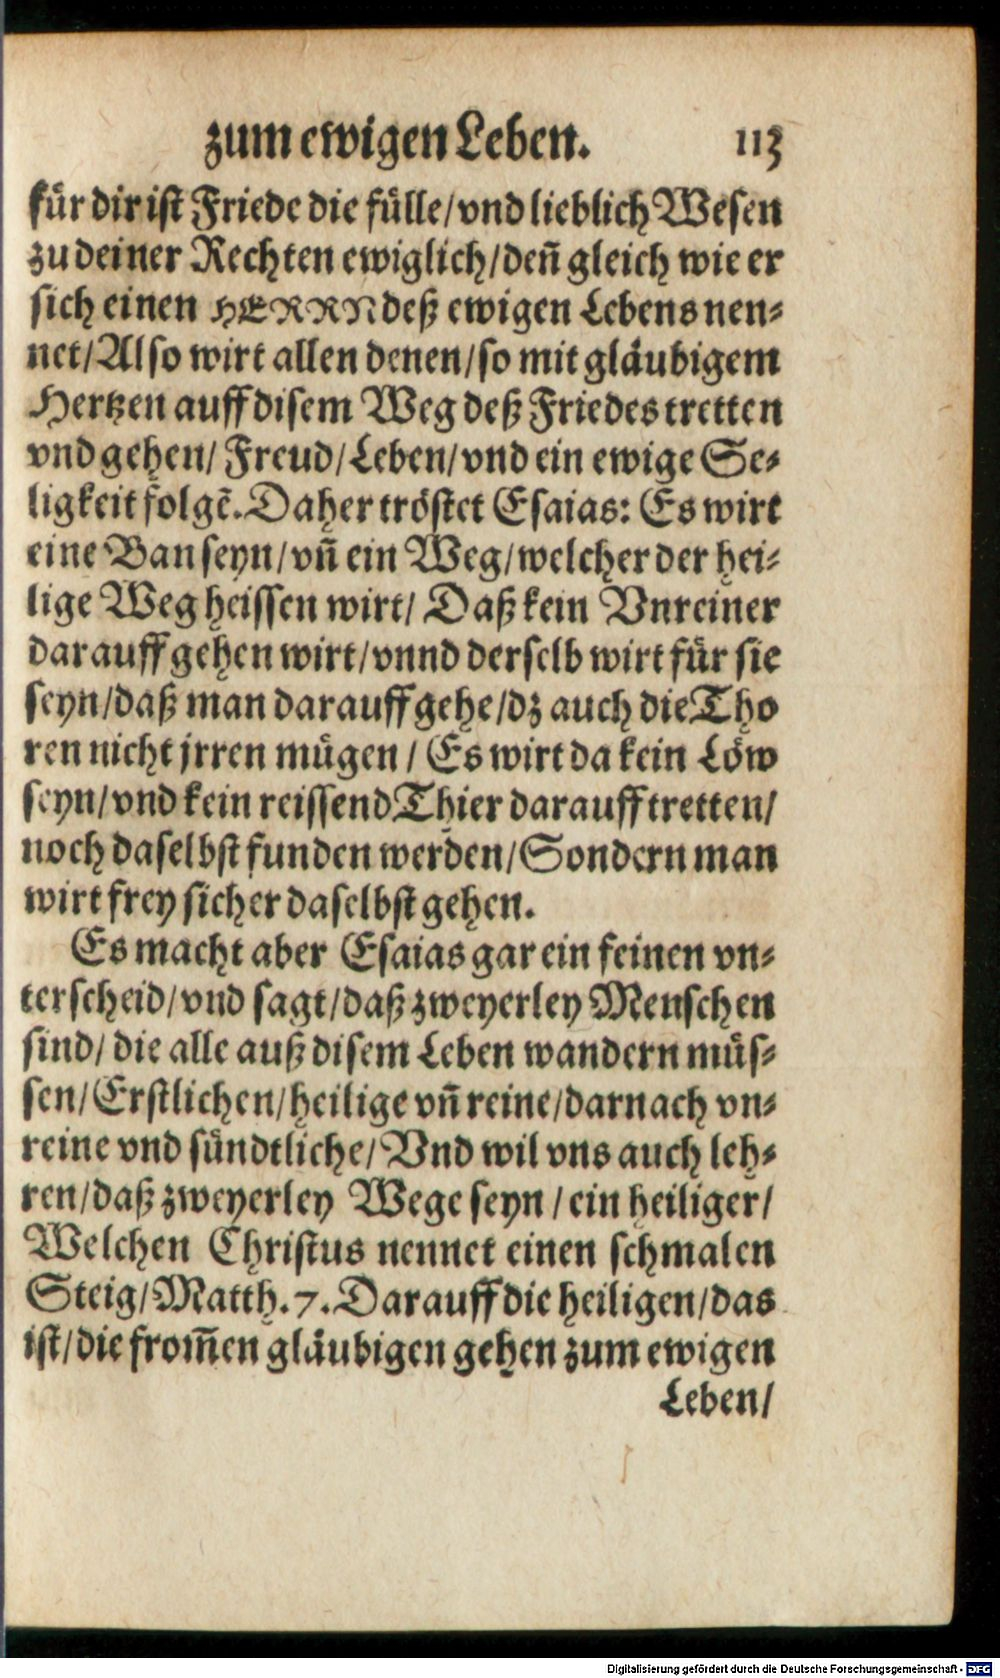 zum ewigen Leben. 113
für dir ist Friede die fülle/vnd lieblich Wesen
zu deiner Rechten ewiglich/deñ gleich wie er
sich einen HERRN deß ewigen Lebens nen-
net/Also wirt allen denen/so mit gläubigem
Hertzen auff disem Weg deß Friedes tretten
vnd gehen/ Freud/Leben/vnd ein ewige Se-
ligkeit folgẽ. Daher tröstet Esaias: Es wirt
eine Ban seyn/vñ ein Weg/welcher der hei-
lige Weg heissen wirt/ Daß kein Vnreiner
darauff gehen wirt/vnnd derselb wirt für sie
seyn/daß man darauff gehe/dz auch die Tho
ren nicht jrren mügen/ Es wirt da kein Löw
seyn/vnd kein reissend Thier darauff tretten/
noch daselbst funden werden/Sondern man
wirt frey sicher daselbst gehen.
Es macht aber Esaias gar ein feinen vn-
terscheid/vnd sagt/daß zweyerley Menschen
sind/ die alle auß disem Leben wandern müs-
sen/Erstlichen/heilige vñ reine/darnach vn-
reine vnd sündtliche/Vnd wil vns auch leh-
ren/daß zweyerley Wege seyn/ein heiliger/
Welchen Christus nennet einen schmalen
Steig/Matth. 7. Darauff die heiligen/das
ist/die from̃en gläubigen gehen zum ewigen
Leben/
Digitalisierung gefördert durch die Deutsche Forschungsgemeinschaft - DFG